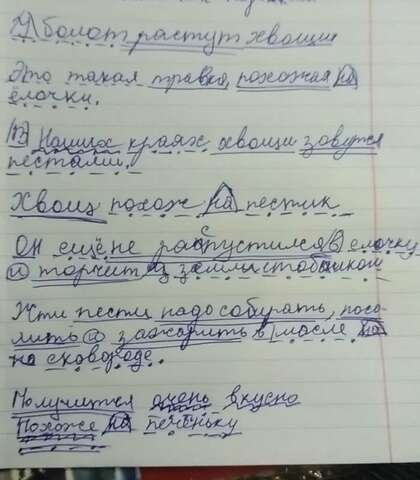 У болот растут хвощи
Это такая травка, похожая на
ёлочки.
В Наших краях хвощи зовутся
пестами.
Хвощ похож на пестик
Он ещё не распустился в ёлочку
и торчит из земли столбиком
Эти пести надо собирать, посо-
лить и зажарить в масле на
на сковороде.
Получится очень вкусно
Похоже на печеньку